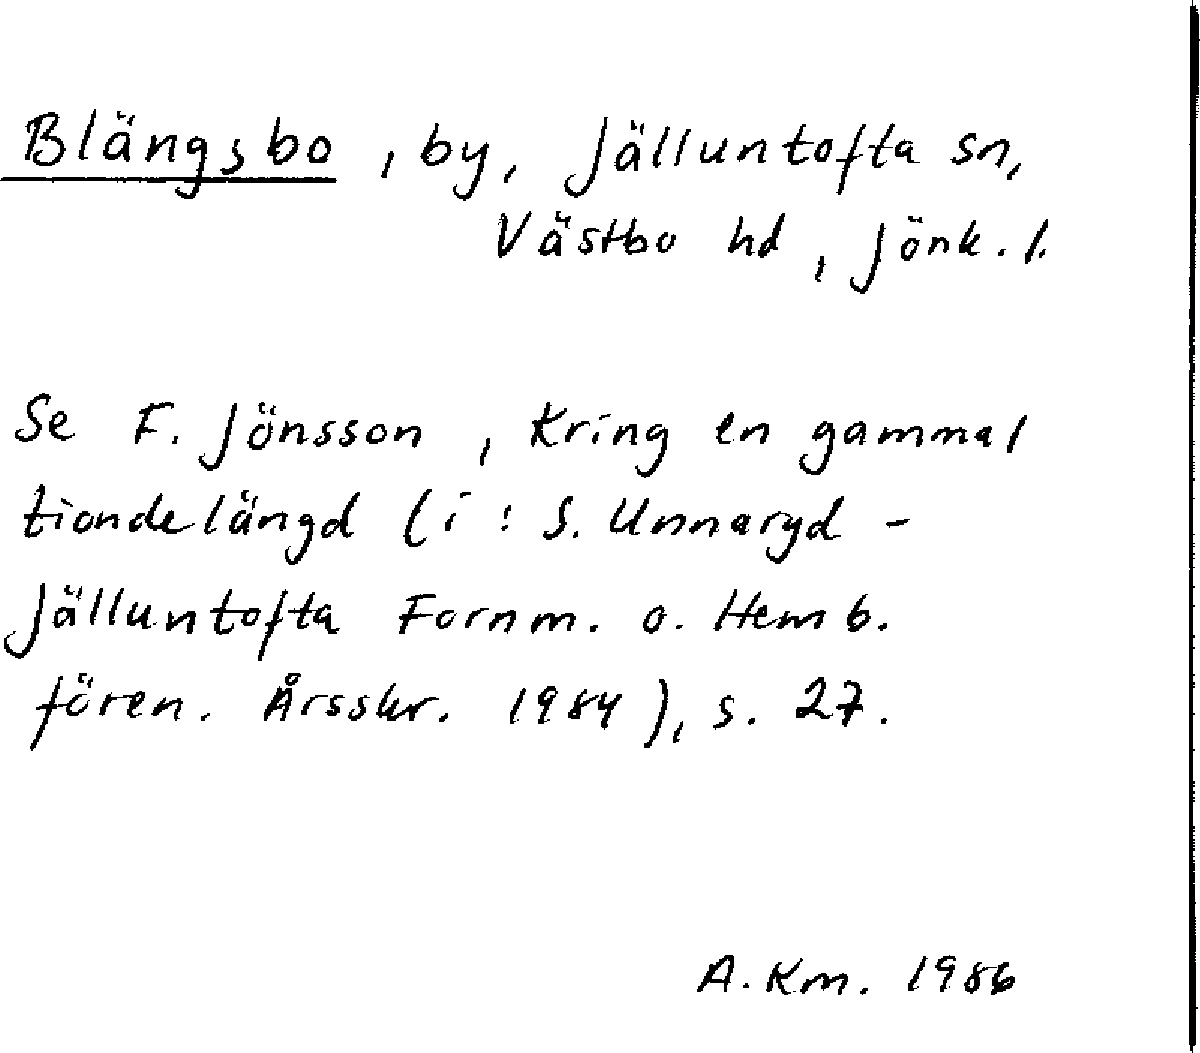 Blängsbo, by, Jälluntofta sn,
Västbo hd, Jönk. l.
Se F. Jönsson, Kring en gammal
tiondelängd (i: S. Unnaryd -
Jälluntofta Fornm. o. Hemb.
fören. Årsskr. 1984), s. 27.
A. Km. 1986